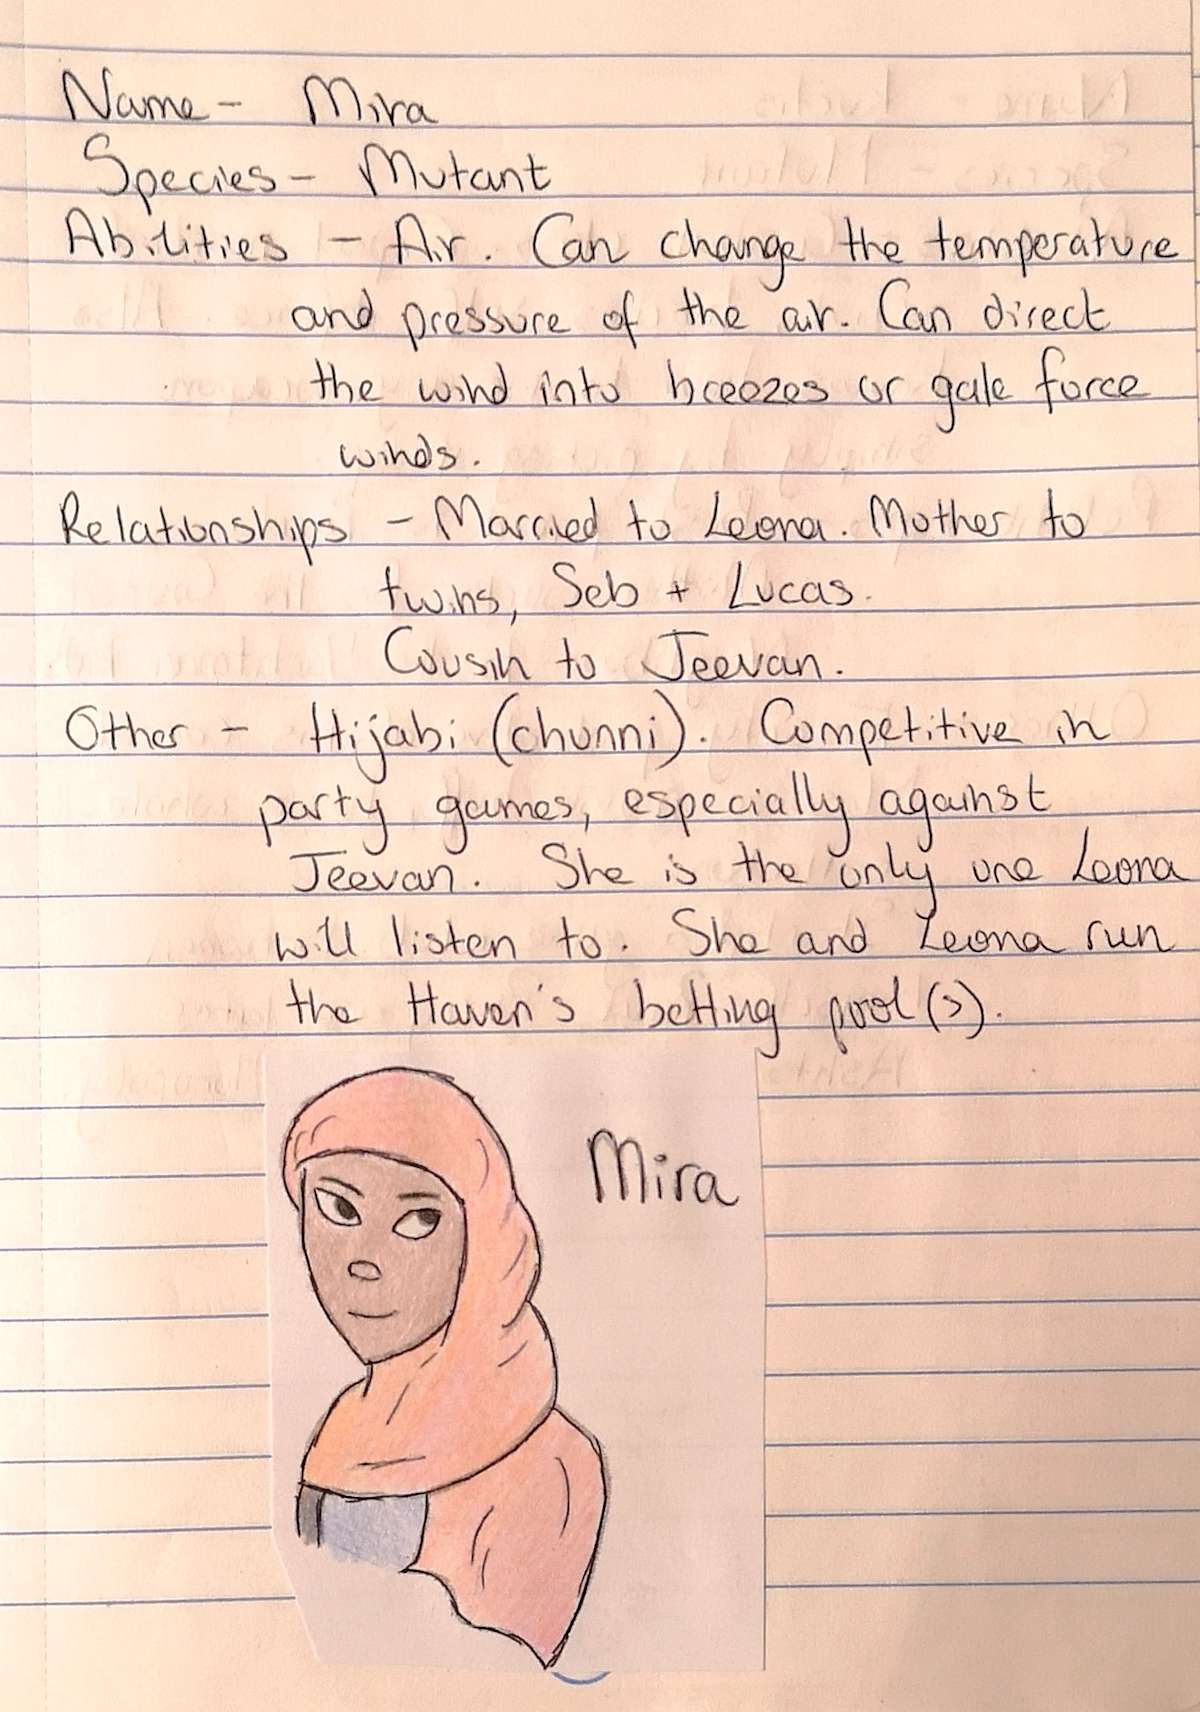 Name - Mira
Species - Mutant
Abilities - Air. Can change the temperature
and pressure of the air. Can direct
the wind into breezes or gale force
winds.
Relationships - Married to Leona. Mother to
twins, Seb + Lucas.
Cousin to Jeevan.
Other - Hijabi (chunni). Competitive in
party games, especially against
Jeevan. She is the only one Leona
will listen to. She and Leona run
the Haven's betting pool(s).
Mira